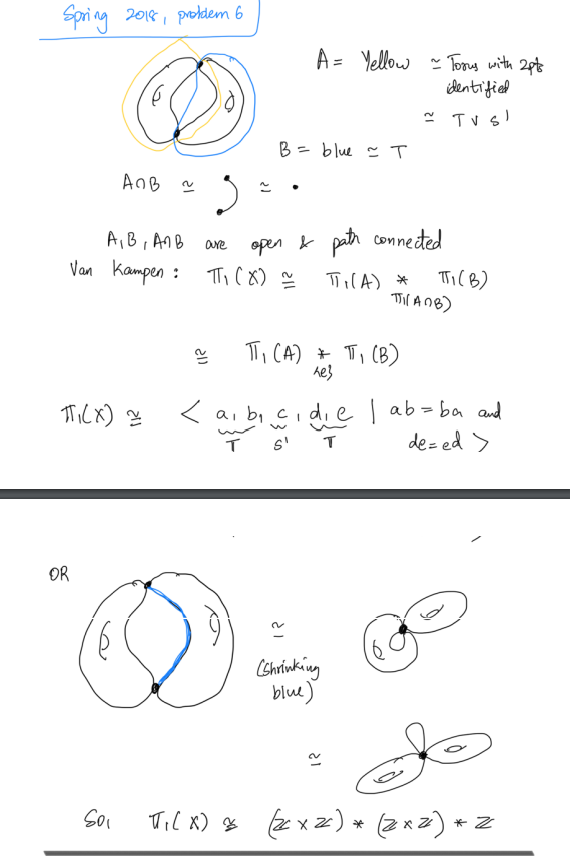 Spring 2018, problem 6
A = Yellow ≃ Torus with 2pts identified
≃ T ∨ S¹
B = blue ≃ T
A∩B ≃ ≃ •
A, B, A∩B are open & path connected
Van Kampen: π₁(X) ≅ π₁(A) * π₁(B)
π₁(A∩B)
≅ π₁(A) * π₁(B)
{e}
π₁(X) ≅ < a, b, c, d, e | ab = ba and
T S¹ T de = ed >
OR
≃
(shrinking
blue)
≃
So, π₁(X) ≅ (ℤ × ℤ) * (ℤ × ℤ) * ℤ